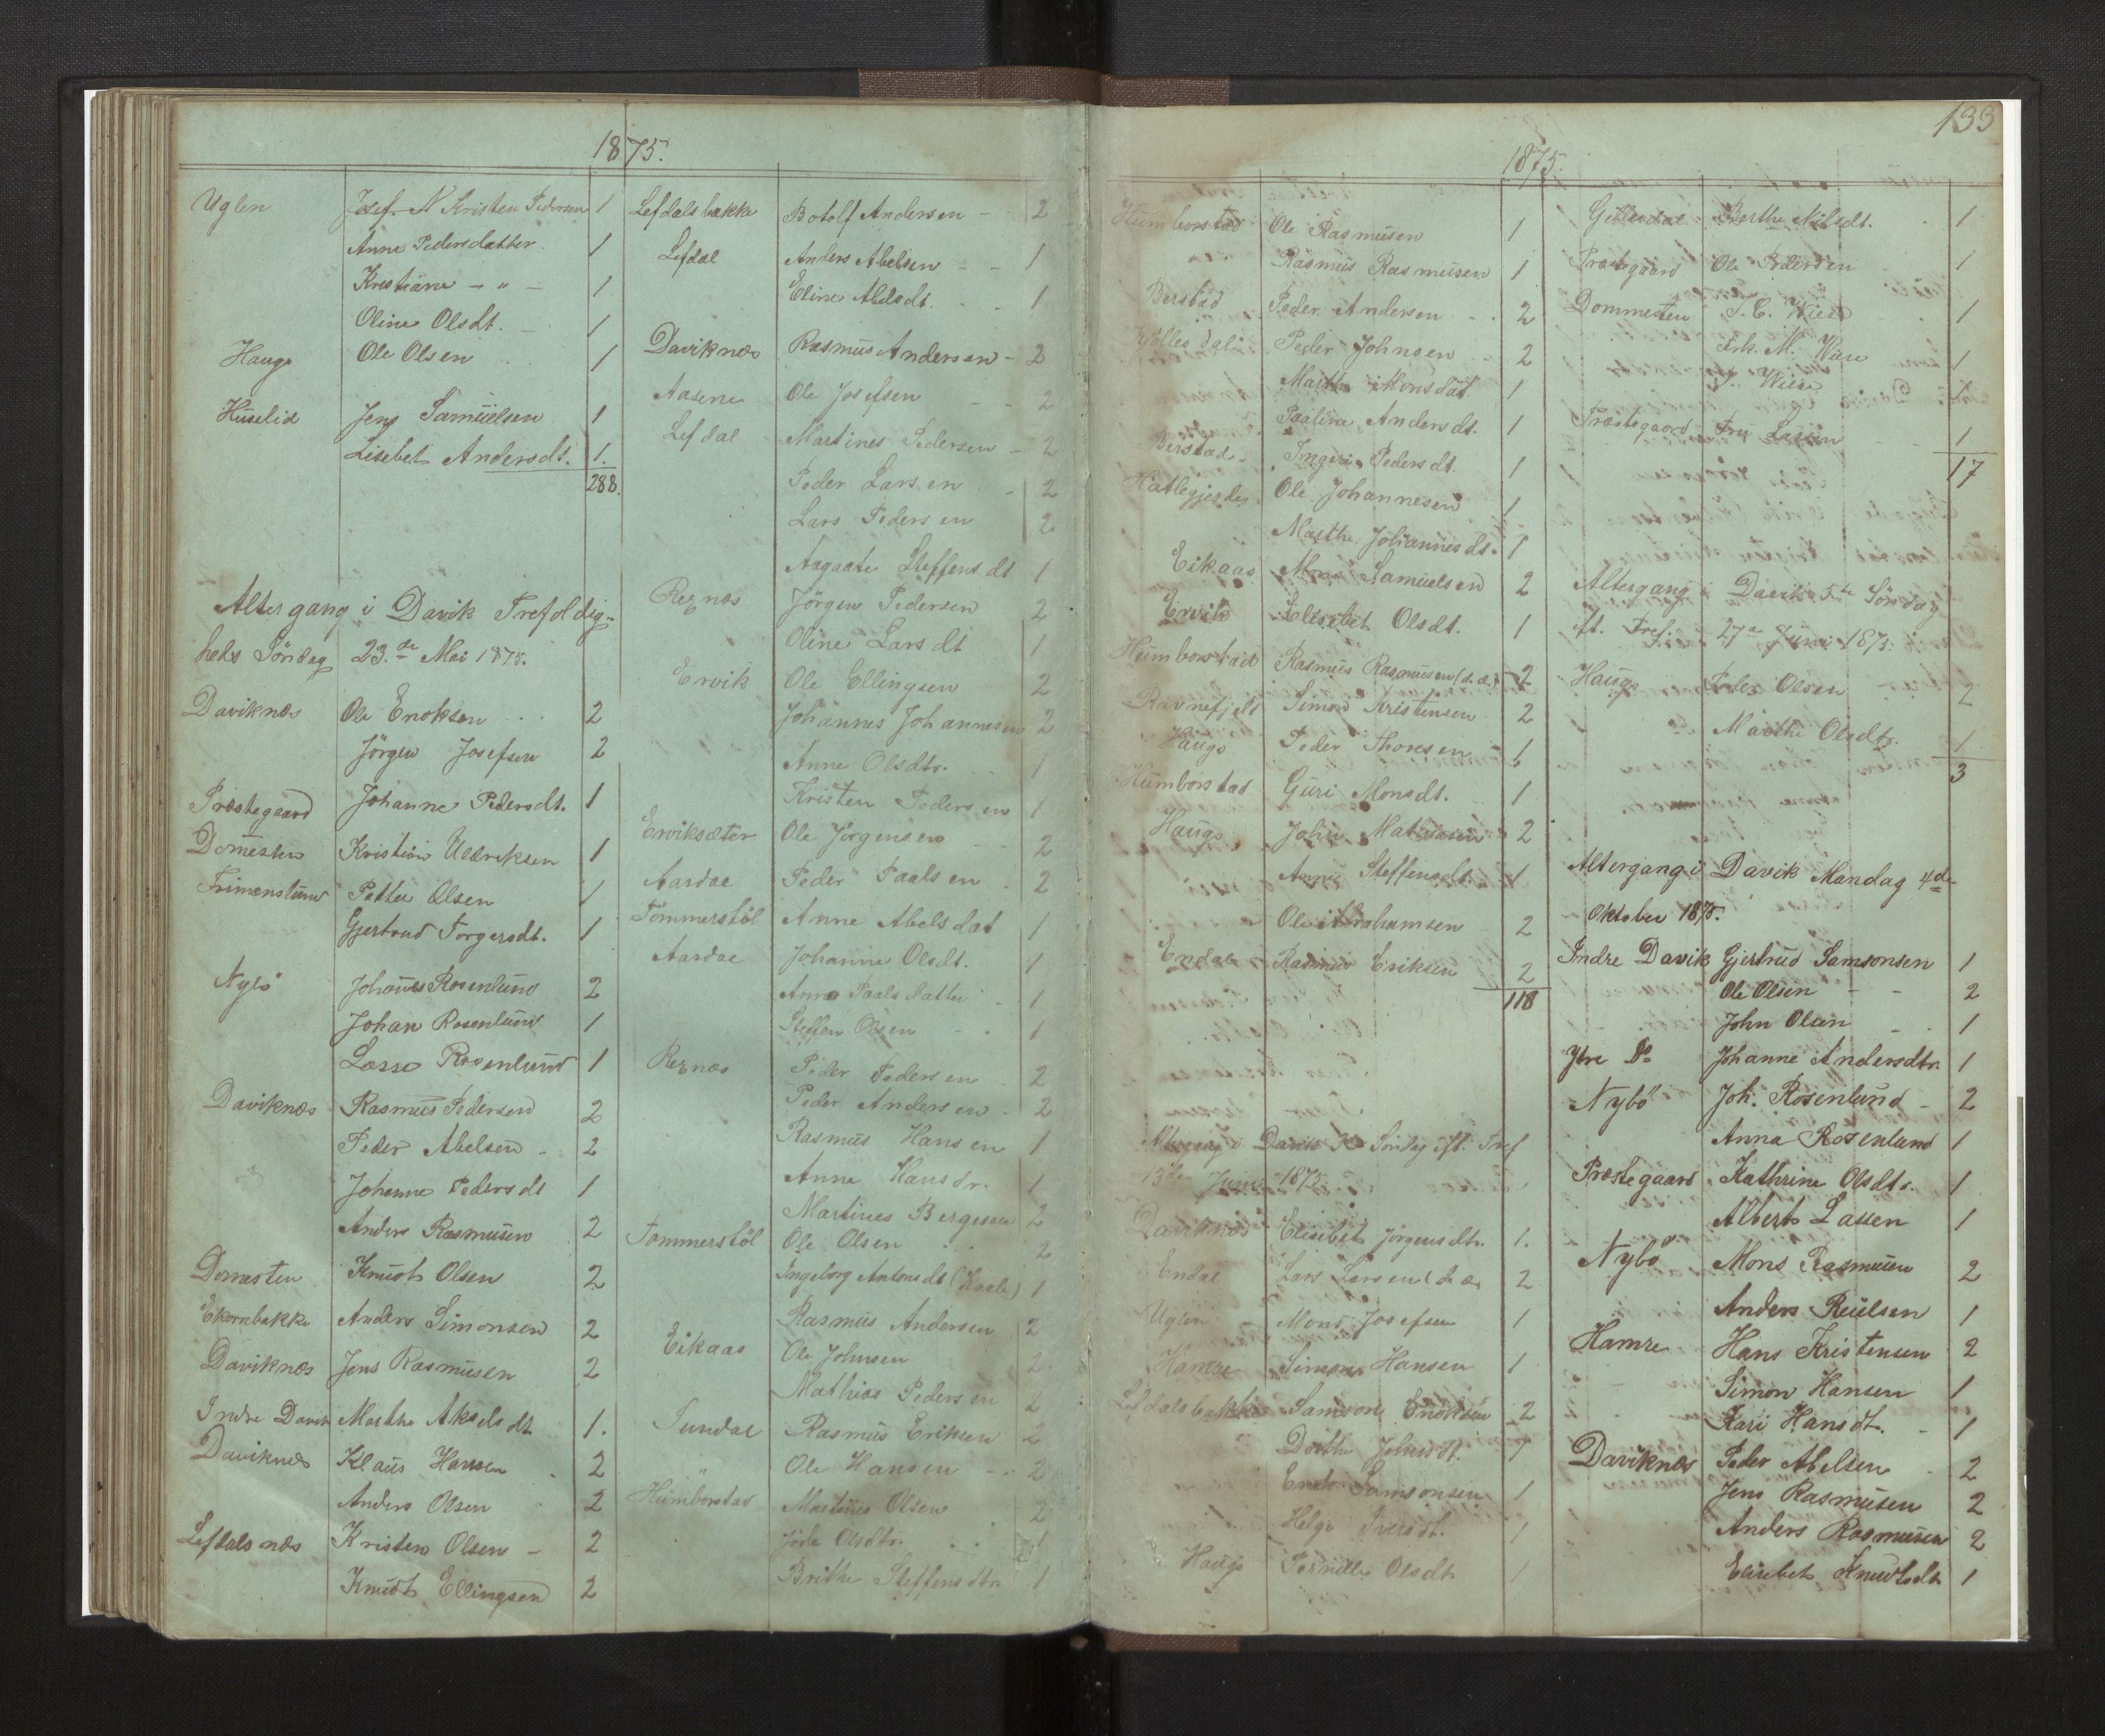 1875.
Uglen Josef N Kristen Pedersen 1
Anne Pedersdatter 1
Kristiane - " - 1
Oline Olsdt. 1
Hauge Ole Olsen 1
Huselid Jens Samuelsen 1
Lisebet Andersdt. 1.
288.
Altergang i Davik Trefoldig-
heds Söndag 23.de Mai 1875.
Daviknæs Ole Enoksen 2
Jörgen Josefsen 2
Præstegaard Johanne Pedersdt. 1
Domesten Kristian Uldriksen 1
Petter Olsen 1
Gjertrud Torgersdt. 1
Nybö Johannes Rosenlund 2
Johan Rosenlund 1
Lasse Rosenlund 1
Daviknæs Rasmus Pedersen 2
Peder Abelsen 2
Johanne Pedersdt 1
Anders Rasmusen 2
Domesten Knudt Olsen 2
Ekornbakke Anders Simonsen 2
Daviknæs Jens Rasmusen 2
Indre Davik Marthe Akselsdt 1.
Daviknes Klaus Hansen 2
Anders Olsen 2
Lefdalsnæs Kristen Olsen - 2
Knudt Ellingsen 2
Lefdalsbakke Botolf Andersen - 2
Lefdal Anders Abelsen - - 1
Eline Abelsdt. 1
Daviknæs Rasmus Andersen - 2
Aasene Ole Josefsen 2
Lefdal Martines Pedersen - 2
Peder Larsen - 2
Lars Pedersen 2
Aagaate Steffensdt 1
Rexnæs Jörgen Pedersen 2
Oline Larsdt 1
Ervik Ole Ellingsen 2
Johannes Johannesen 2
Anne Olsdtr. 1
Kristen Pedersen 1
Erviksæter Ole Jörgensen 2
Aardal Peder Paalsen 2
Tömmerstöl Anne Abelsdat 1
Aardal Johanne Olsdt. 1
Anna Paalsdatter - 1
Steffen Olsen - 1
Rexnæs Peder Pedersen 2
Peder Andersen - 2
Rasmus Hansen 1
Anne Hansdr. 1
Martines Bergesen 2
Tömmerstöl Ole Olsen 2
Ingeborg Antonsdt 1
Rasmus Andersen 2
Eikaas Ole Johnsen 2
Mathias Pedersen 2
Rasmus Eriksen 2
Ole Hansen - 2
Humborstad Martines Olsen 2
Olsdtr. 1
Brithe Steffensdtr 1
133
1875.
Humborstad Ole Rasmusen 1
Rasmus Rasmusen 1
Berstad Peder Andersen 2
Peder Johnsen 2
Marthe Monsdat 1
Paaline Andersdt. 1
Berstad Pedersdt. 1
Ole Johannesen 1
Marthe Johannesdt. 1
Eikaas Mons Samuelsen 2
Ervik Elisebet Olsdt. 1
Humborstad Rasmus Rasmusen 2
Ravnefjeld Simon Kristensen 2
Hauge Peder Thoresen 1
Humborstad Guri Monsdt. 1
Hauge John Mathiasen 2
Anne Steffensdt. 1
Ole Abrahamsen 2
Endal Rasmus Eriksen 2
118
Davik Söndag eft. Tref
13de Juni 1875.
Daviknæs Elisebet Jörgensdt. 1.
Endal Lars Larsen 2
Uglen Mons Josefsen 1
Hamre Simon Hansen 1
Lefdalsbakke Samson Enoksen 2
Dorthe Johnsdt. 1
Samsonsen 1
Helge Iversdt. 1
Hauge Pernille Olsdt 1
Berthe Nilsdt. 1
Præstegaard Ole Pedersen 1
Dommesten 1
Frk. M. Wiese 1
Wiese 1
Præstegaard Fru Lassen 1
17
Altergang i Davik 5te Söndag
eft. Tref. 27de Juni 1875.
Hauge Peder Olsen 2
Marthe Olsdtr. 1
3
Altergang i Davik Mandag 4de
Oktober 1875.
Indre Davik Gjertrud Samsonsen 1
Ole Olsen - - 2
John Olsen 1
Ytre Do Johanne Andersdtr. 1
Nybö Joh. Rosenlund - 2
Anna Rosenlund 1
Præstegaard Kathrine Olsdtr. 1
Albert Lassen 1
Nybö Mons Rasmusen 2
Anders 1
Hamre Hans Kristensen 2
Simon Hansen 1
Kari Hansdt. - 1
Daviknæs Peder Abelsen 2
Jens Rasmusen 2
Anders Rasmusen 2
Elisebet Knudtsdt 1